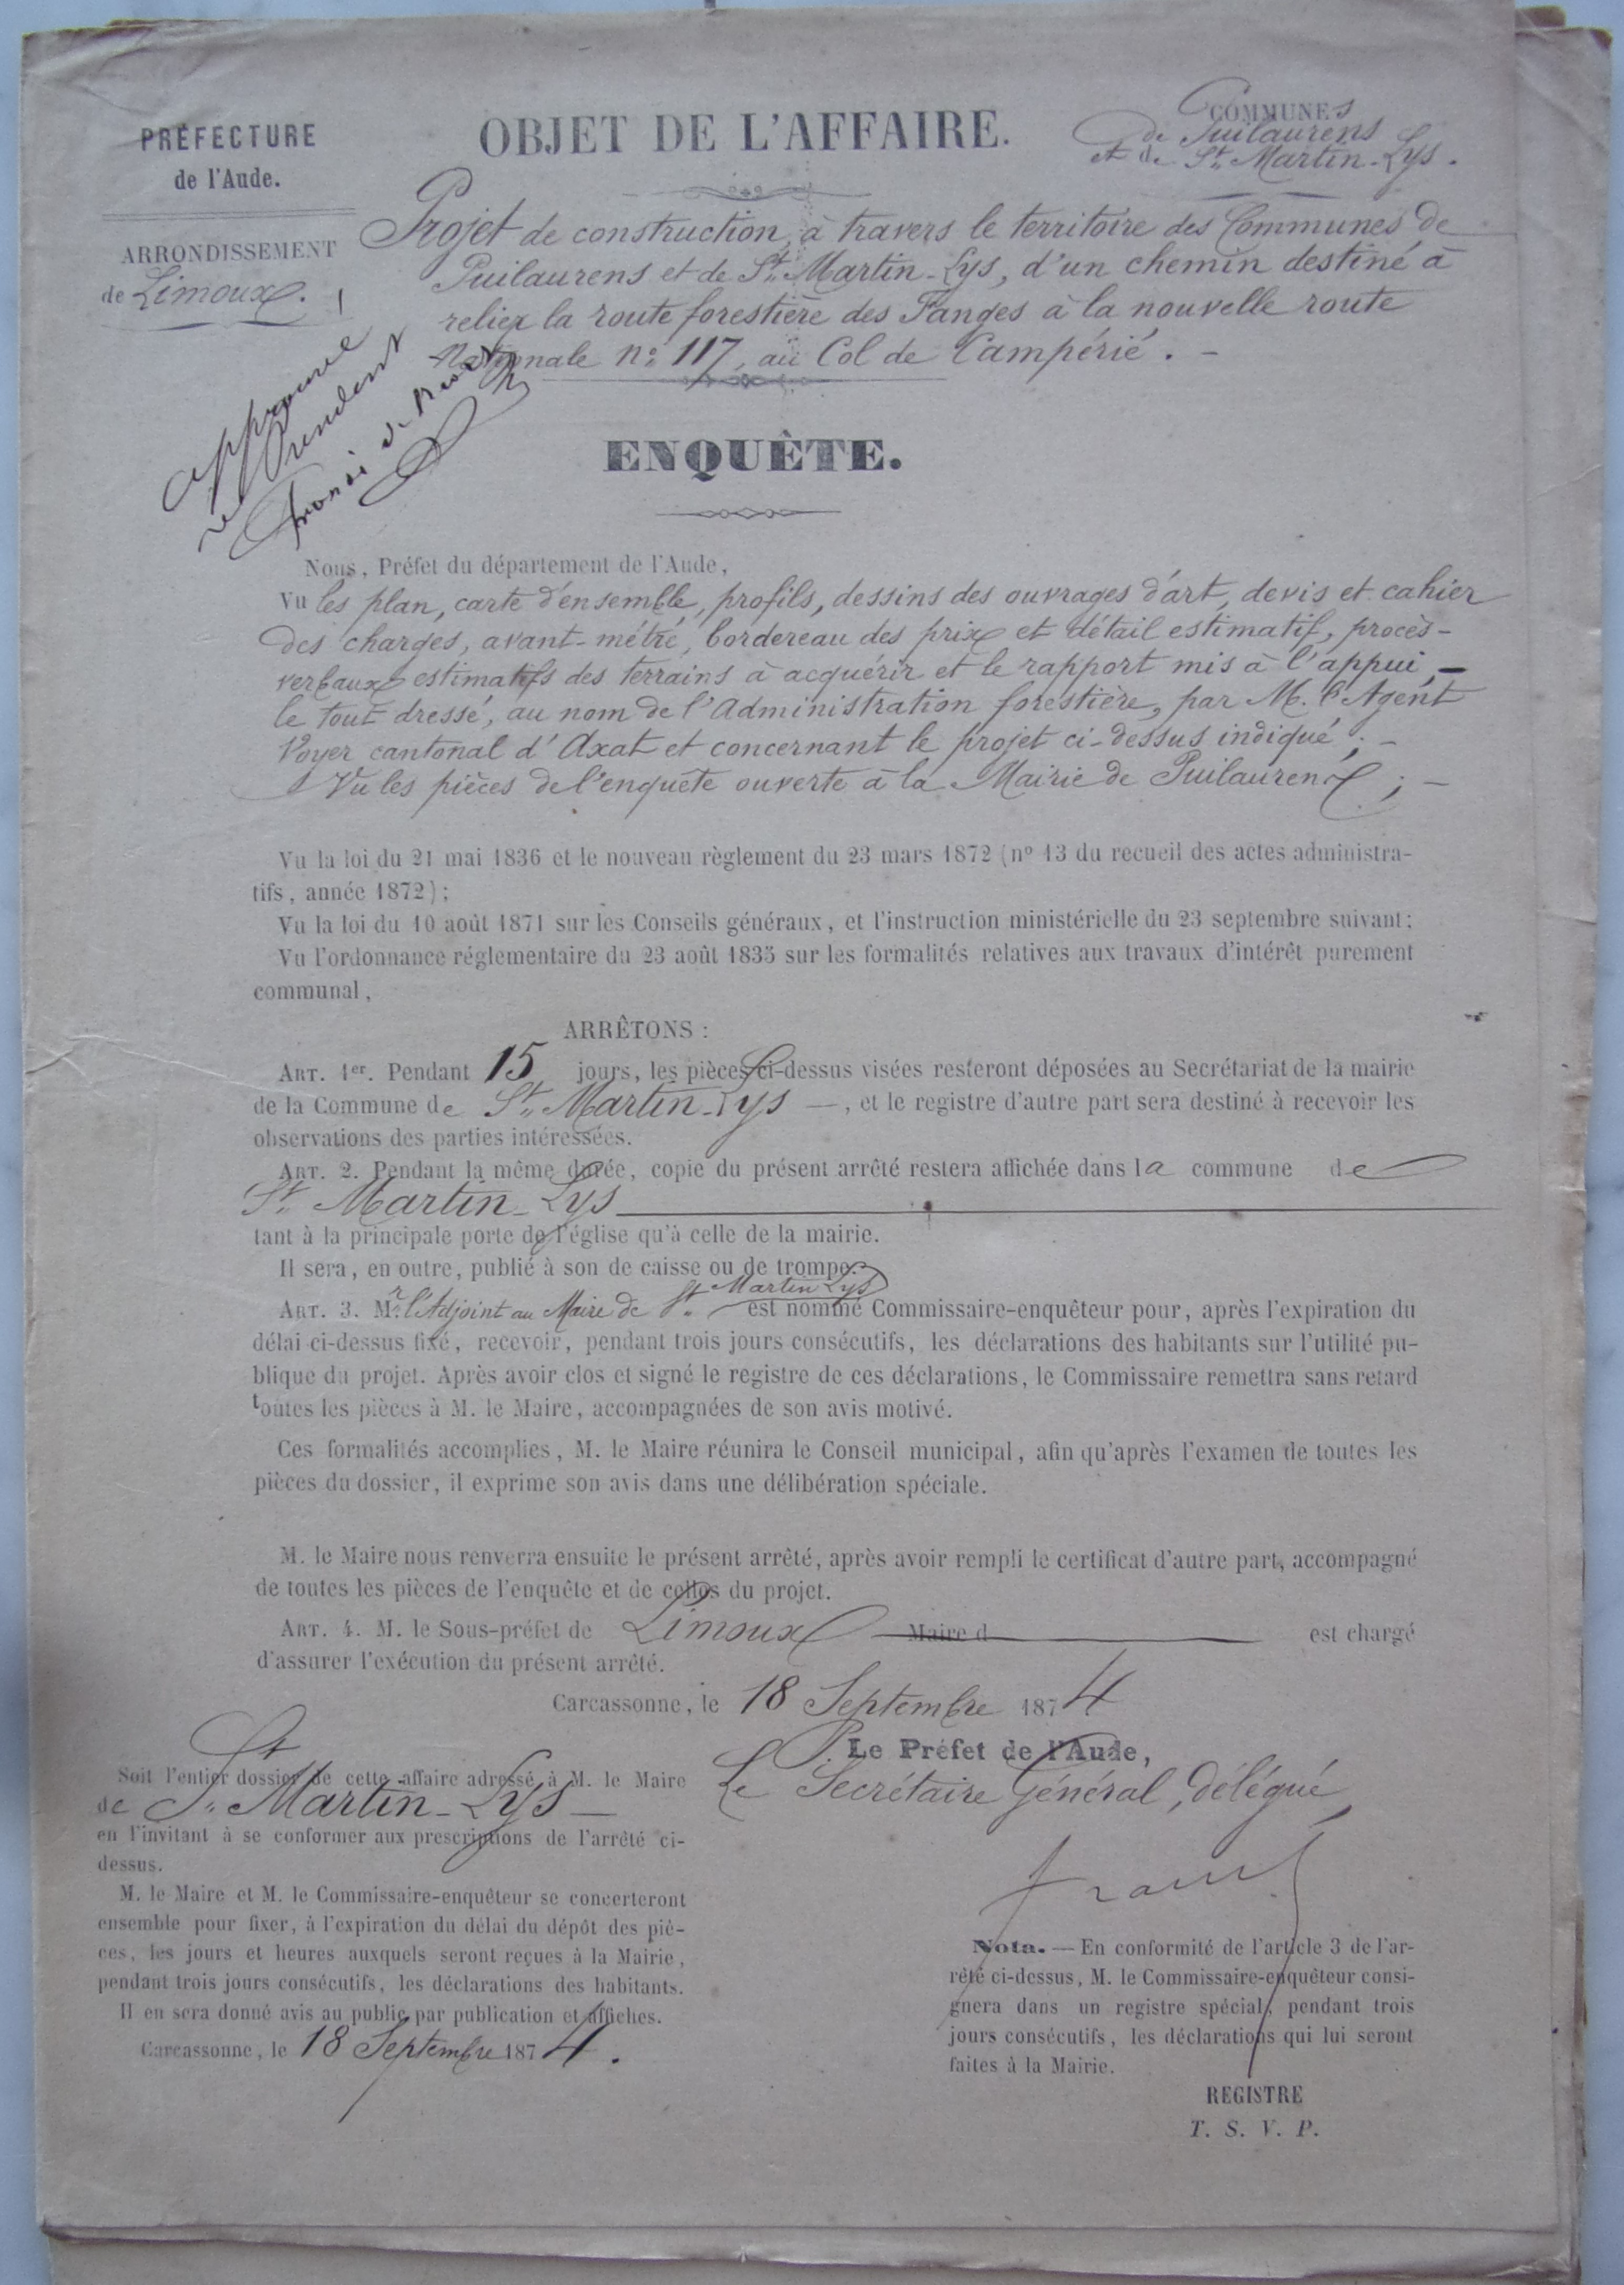 PRÉFECTURE
de l'Aude.
ARRONDISSEMENT
de Limoux.
OBJET DE L'AFFAIRE.
COMMUNES
de Puilaurens
et de St. Martin-Lys.
Projet de construction, à travers le territoire des Communes de
Puilaurens et de St. Martin-Lys, d'un chemin destiné à
relier la route forestière des Fanges à la nouvelle route
Nationale n° 117, au Col de Campérié. -
approuvé
le
ENQUÊTE.
Nous, Préfet du département de l'Aude,
Vu les plan, carte d'ensemble, profils, dessins des ouvrages d'art, devis et cahier
des charges, avant-métré, bordereau des prix et détail estimatif, procès-
verbaux estimatifs des terrains à acquérir et le rapport mis à l'appui, -
le tout dressé, au nom de l'Administration forestière, par M. l'Agent
Voyer cantonal d'Axat et concernant le projet ci-dessus indiqué; -
Vu les pièces de l'enquête ouverte à la Mairie de Puilaurens; -
Vu la loi du 21 mai 1836 et le nouveau règlement du 23 mars 1872 (n° 13 du recueil des actes administra-
tifs, année 1872);
Vu la loi du 10 août 1871 sur les Conseils généraux, et l'instruction ministérielle du 23 septembre suivant;
Vu l'ordonnance réglementaire du 23 août 1835 sur les formalités relatives aux travaux d'intérêt purement
communal,
ARRÊTONS :
ART. 1er. Pendant 15 jours, les pièces ci-dessus visées resteront déposées au Secrétariat de la mairie
de la Commune de St. Martin-Lys —, et le registre d'autre part sera destiné à recevoir les
observations des parties intéressées.
ART. 2. Pendant la même durée, copie du présent arrêté restera affichée dans la commune de
St. Martin-Lys
tant à la principale porte de l'église qu'à celle de la mairie.
Il sera, en outre, publié à son de caisse ou de trompe.
ART. 3. Mr. l'Adjoint au Maire de St. Martin Lys est nommé Commissaire-enquêteur pour, après l'expiration du
délai ci-dessus fixé, recevoir, pendant trois jours consécutifs, les déclarations des habitants sur l'utilité pu-
blique du projet. Après avoir clos et signé le registre de ces déclarations, le Commissaire remettra sans retard
toutes les pièces à M. le Maire, accompagnées de son avis motivé.
Ces formalités accomplies, M. le Maire réunira le Conseil municipal, afin qu'après l'examen de toutes les
pièces du dossier, il exprime son avis dans une délibération spéciale.
M. le Maire nous renverra ensuite le présent arrêté, après avoir rempli le certificat d'autre part, accompagné
de toutes les pièces de l'enquête et de celles du projet.
ART. 4. M. le Sous-préfet de Limoux Maire d est chargé
d'assurer l'exécution du présent arrêté.
Carcassonne, le 18 Septembre 1874
P. Le Préfet de l'Aude,
Le Secrétaire Général, délégué
Soit l'entier dossier de cette affaire adressé à M. le Maire
de St. Martin-Lys —
en l'invitant à se conformer aux prescriptions de l'arrêté ci-
dessus.
M. le Maire et M. le Commissaire-enquêteur se concerteront
ensemble pour fixer, à l'expiration du délai du dépôt des piè-
ces, les jours et heures auxquels seront reçues à la Mairie,
pendant trois jours consécutifs, les déclarations des habitants.
Il en sera donné avis au public par publication et affiches.
Carcassonne, le 18 Septembre 1874.
Nota. — En conformité de l'article 3 de l'ar-
rêté ci-dessus, M. le Commissaire-enquêteur consi-
gnera dans un registre spécial, pendant trois
jours consécutifs, les déclarations qui lui seront
faites à la Mairie.
REGISTRE
T. S. V. P.